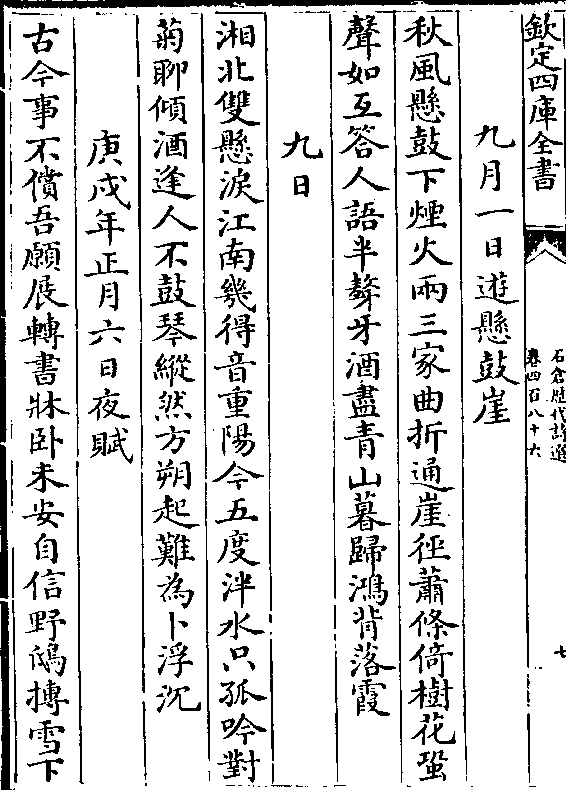 欽定四庫全書
石倉歴代詩選
卷四百八十六
七
九月一日遊懸鼓崖
秋風懸鼓下煙火兩三家曲折通崖徑蕭條倚樹花蛩
聲如互答人語半聱牙酒盡青山暮歸鴻背落霞
九日
湘北雙懸淚江南幾得音重陽今五度泮水只孤吟對
菊聊傾酒逢人不鼓琴縱然方朔起難為卜浮沉
庚戌年正月六日夜賦
古今事不償吾願展轉書牀卧未安自信野鴟摶雪下